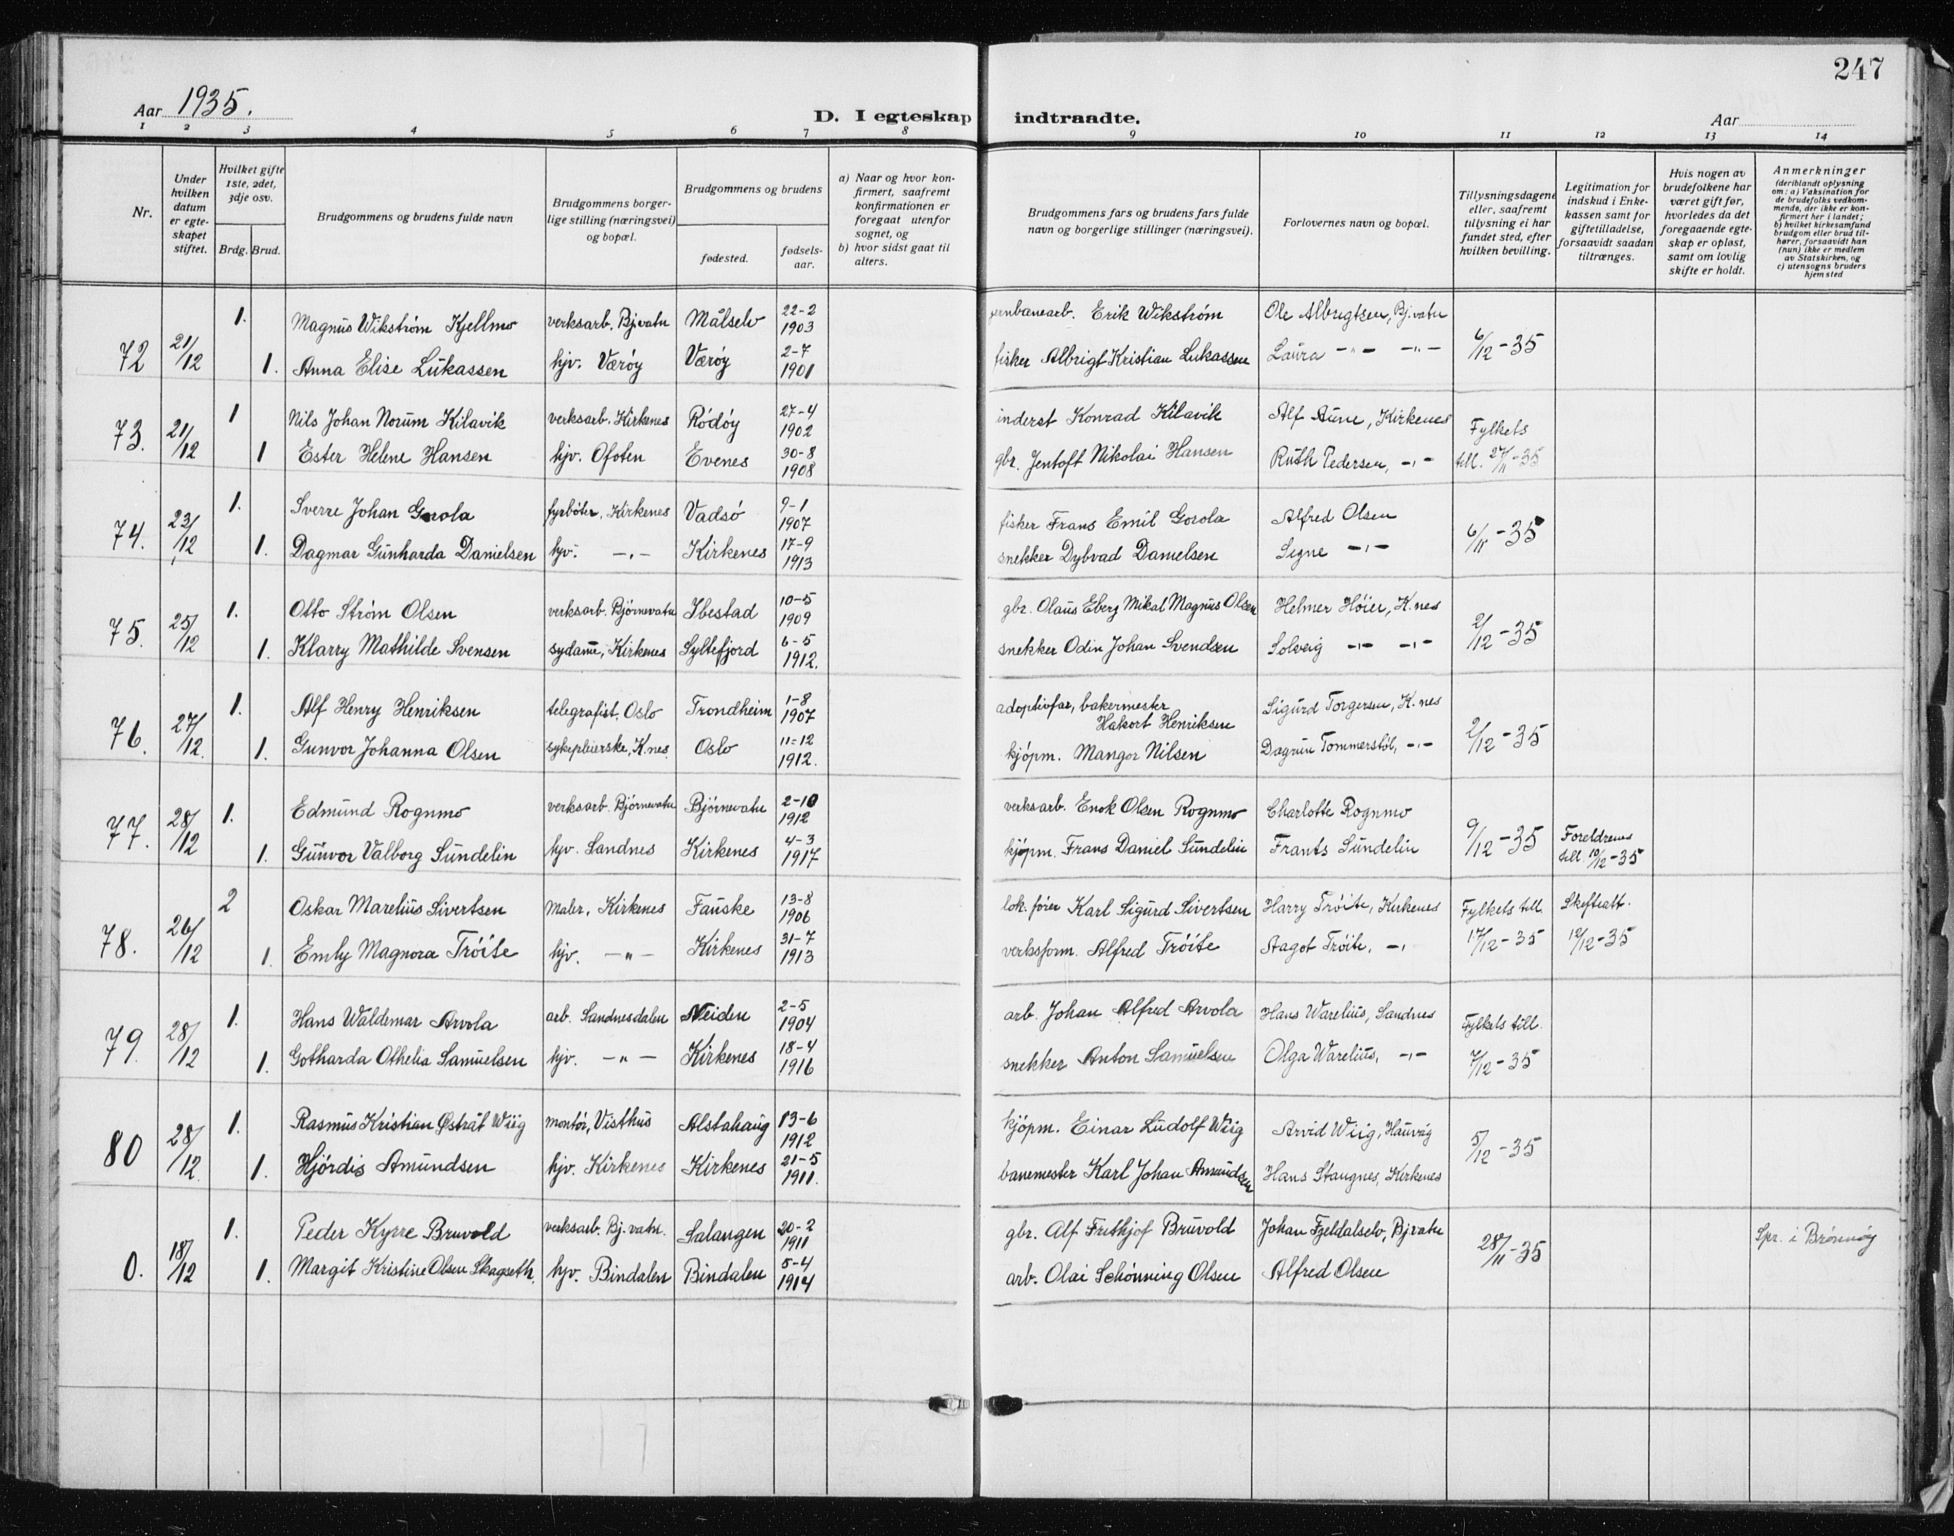 247
Aar 1935.
D. I egteskap indtraadte.
Aar
1 2 3 4 5 6 7 8 9 10 11 12 13 14
Nr.
Under hvilken datum er egteskapet stiftet.
Hvilket gifte 1ste, 2det, 3dje osv.
Brdg. Brud.
Brudgommens og brudens fulde navn
Brudgommens borgerlige stilling (næringsvei) og bopæl.
Brudgommens og brudens
fødested.
fødselsaar.
a) Naar og hvor konfirmert, saafremt konfirmationen er foregaat utenfor sognet, og
b) hvor sidst gaat til alters.
Brudgommens fars og brudens fars fulde navn og borgerlige stillinger (næringsvei).
Forlovernes navn og bopæl.
Tillysningsdagene eller, saafremt tillysning ei har fundet sted, efter hvilken bevilling.
Legitimation for indskud i Enkekassen samt for giftetilladelse, forsaavidt saadan tiltrænges.
Hvis nogen av brudefolkene har været gift før, hvorledes da det foregaaende egteskap er opløst, samt om lovlig skifte er holdt.
Anmerkninger
(deriblandt oplysning om: a) Vaksination for de brudefolks vedkommende, der ikke er konfirmert her i landet; b) hvilket kirkesamfund brudgom eller brud tilhører, forsaavidt han (hun) ikke er medlem av Statskirken, og c) utensogns bruders hjemsted
72 21/12 1. Magnus Wikstrøm Kjellmo verksarb. Bj.vatn Målselv 22-2 1903 jernbanearb. Erik Wikstrøm Ole Albrigtsen, Bj.vatn 6/12-35
1. Anna Elise Lukassen hjv. Værøy Værøy 2-7 1901 fisker Albrigt Kristian Lukassen Laura -"- -"-
73. 21/12 1 Nils Johan Norum Kilavik verksarb. Kirkenes Rödöy 27-4 1902 inderst Konrad Kilavik Alf Aune, Kirkenes Fylkets
1 Ester Helene Hansen hjv. Ofoten Evenes 30-8 1908 gbr. Jentoft Nikolai Hansen Ruth Pedersen, -"- till. 27/11-35
74. 23/12 1. Sverre Johan Gorola fyrböter, Kirkenes Vadsö 9-1 1907 fisker Frans Emil Gorola Alfred Olsen 6/11-35
1. Dagmar Gunharda Danielsen hjv. -"- Kirkenes 17-9 1913 snekker Dybvad Danielsen Signe -"-
75. 25/12 1. Otto Strøm Olsen verksarb. Bjørnevatn Ibestad 10-5 1909 gbr. Olaus Eberg Mikal Magnus Olsen Helmer Höier, K.nes 2/12-35
1. Klarry Mathilde Svensen sydame, Kirkenes Syltefjord 6-5 1912. snekker Odin Johan Svendsen Solveig -"- -"-
76. 27/12. 1. Alf Henry Henriksen telegrafist, Oslo Trondheim 1-8 1907 adoptivfar, bakermester Hakort Henriksen Sigurd Torgersen, K.nes 2/12-35
1. Gunvor Johanna Olsen sykepleierske, K.nes. Oslo 11-12 1912. kjöpm. Mangor Nilsen Dagrun Tommerstöl, -"-
77. 28/12 1. Edmund Rognmo verksarb. Bjørnevatn Bjørnevatn 2-10 1912 verksarb. Enok Olsen Rognmo Charlotte Rognmo 9/12-35 Foreldrenes
1. Gunvor Valborg Sundelin hjv. Sandnes Kirkenes 4-3 1917 kjöpm. Frans Daniel Sundelin Frants Sundelin till. 10/12-35
78. 26/12 2 Oskar Marelius Sivertsen Maler, Kirkenes Fauske 13-8 1906 lok. förer Karl Sigurd Sivertsen Harry Tröite, Kirkenes Fylkets till. Skifteatt.
1. Emly Magnora Tröite hjv. -"- Kirkenes 31-7 1913 verksform. Alfred Tröite Aagot Tröite, -"- 17/12-35 12/12-35
79. 28/12 1. Hans Waldemar Arvola arb. Sandnesdalen Neiden 2-5 1904 arb. Johan Alfred Arvola Hans Warelius, Sandnes Fylkets till.
1. Gotharda Othelia Samuelsen hjv. -"- Kirkenes 18-4 1916 snekker Anton Samuelsen Olga Warelius, -"- 7/12-35
80 28/12 1. Rasmus Kristian Østråt Wiig montör, Visthus Alstahaug 13-6 1912 kjöpm. Einar Ludolf Wiig Arvid Wiig, Hauvåg 5/12-35
1. Hjördis Amundsen hjv. Kirkenes Kirkenes 21-5 1911. banemester Karl Johan Amundsen Hans Stangnes, Kirkenes
0. 18/12 1. Peder Kyrre Bruvold verksarb. Bj.vatn. Salangen 20-2 1911 gbr. Alf Frithjof Bruvold Johan Fjeldalselv, Bj.vatn 28/11-35 Spr. i Brönnöy
1. Margit Kristine Olsen Skagseth. hjv. Bindalen Bindalen 5-4 1914 arb. Olai Schönning Olsen Alfred Olsen